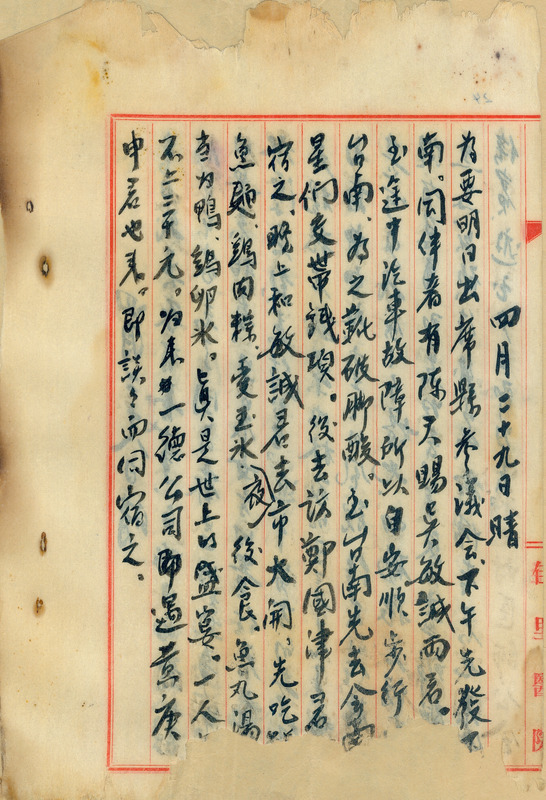 四月二十九日 晴
為要明日出席縣參議會、下午先發下
南。同伴者有陈天賜吳敏誠両君。
玉途中汽車故障、所以自安順步行
台南、為之靴破腳酸。玉台南先去会面
星們交帶錢項。後去訪鄭國津君
宿之、晚上和敏誠君去市大開。先吃
魚麵、鷄肉粽、愛玉氷、夜後食、魚丸湯
当归鴨、鷄卵氷。真是世上的盛宴。一人
不上三千元。归来一德公司即遇黄庚
申君也来。即談々而同宿之。